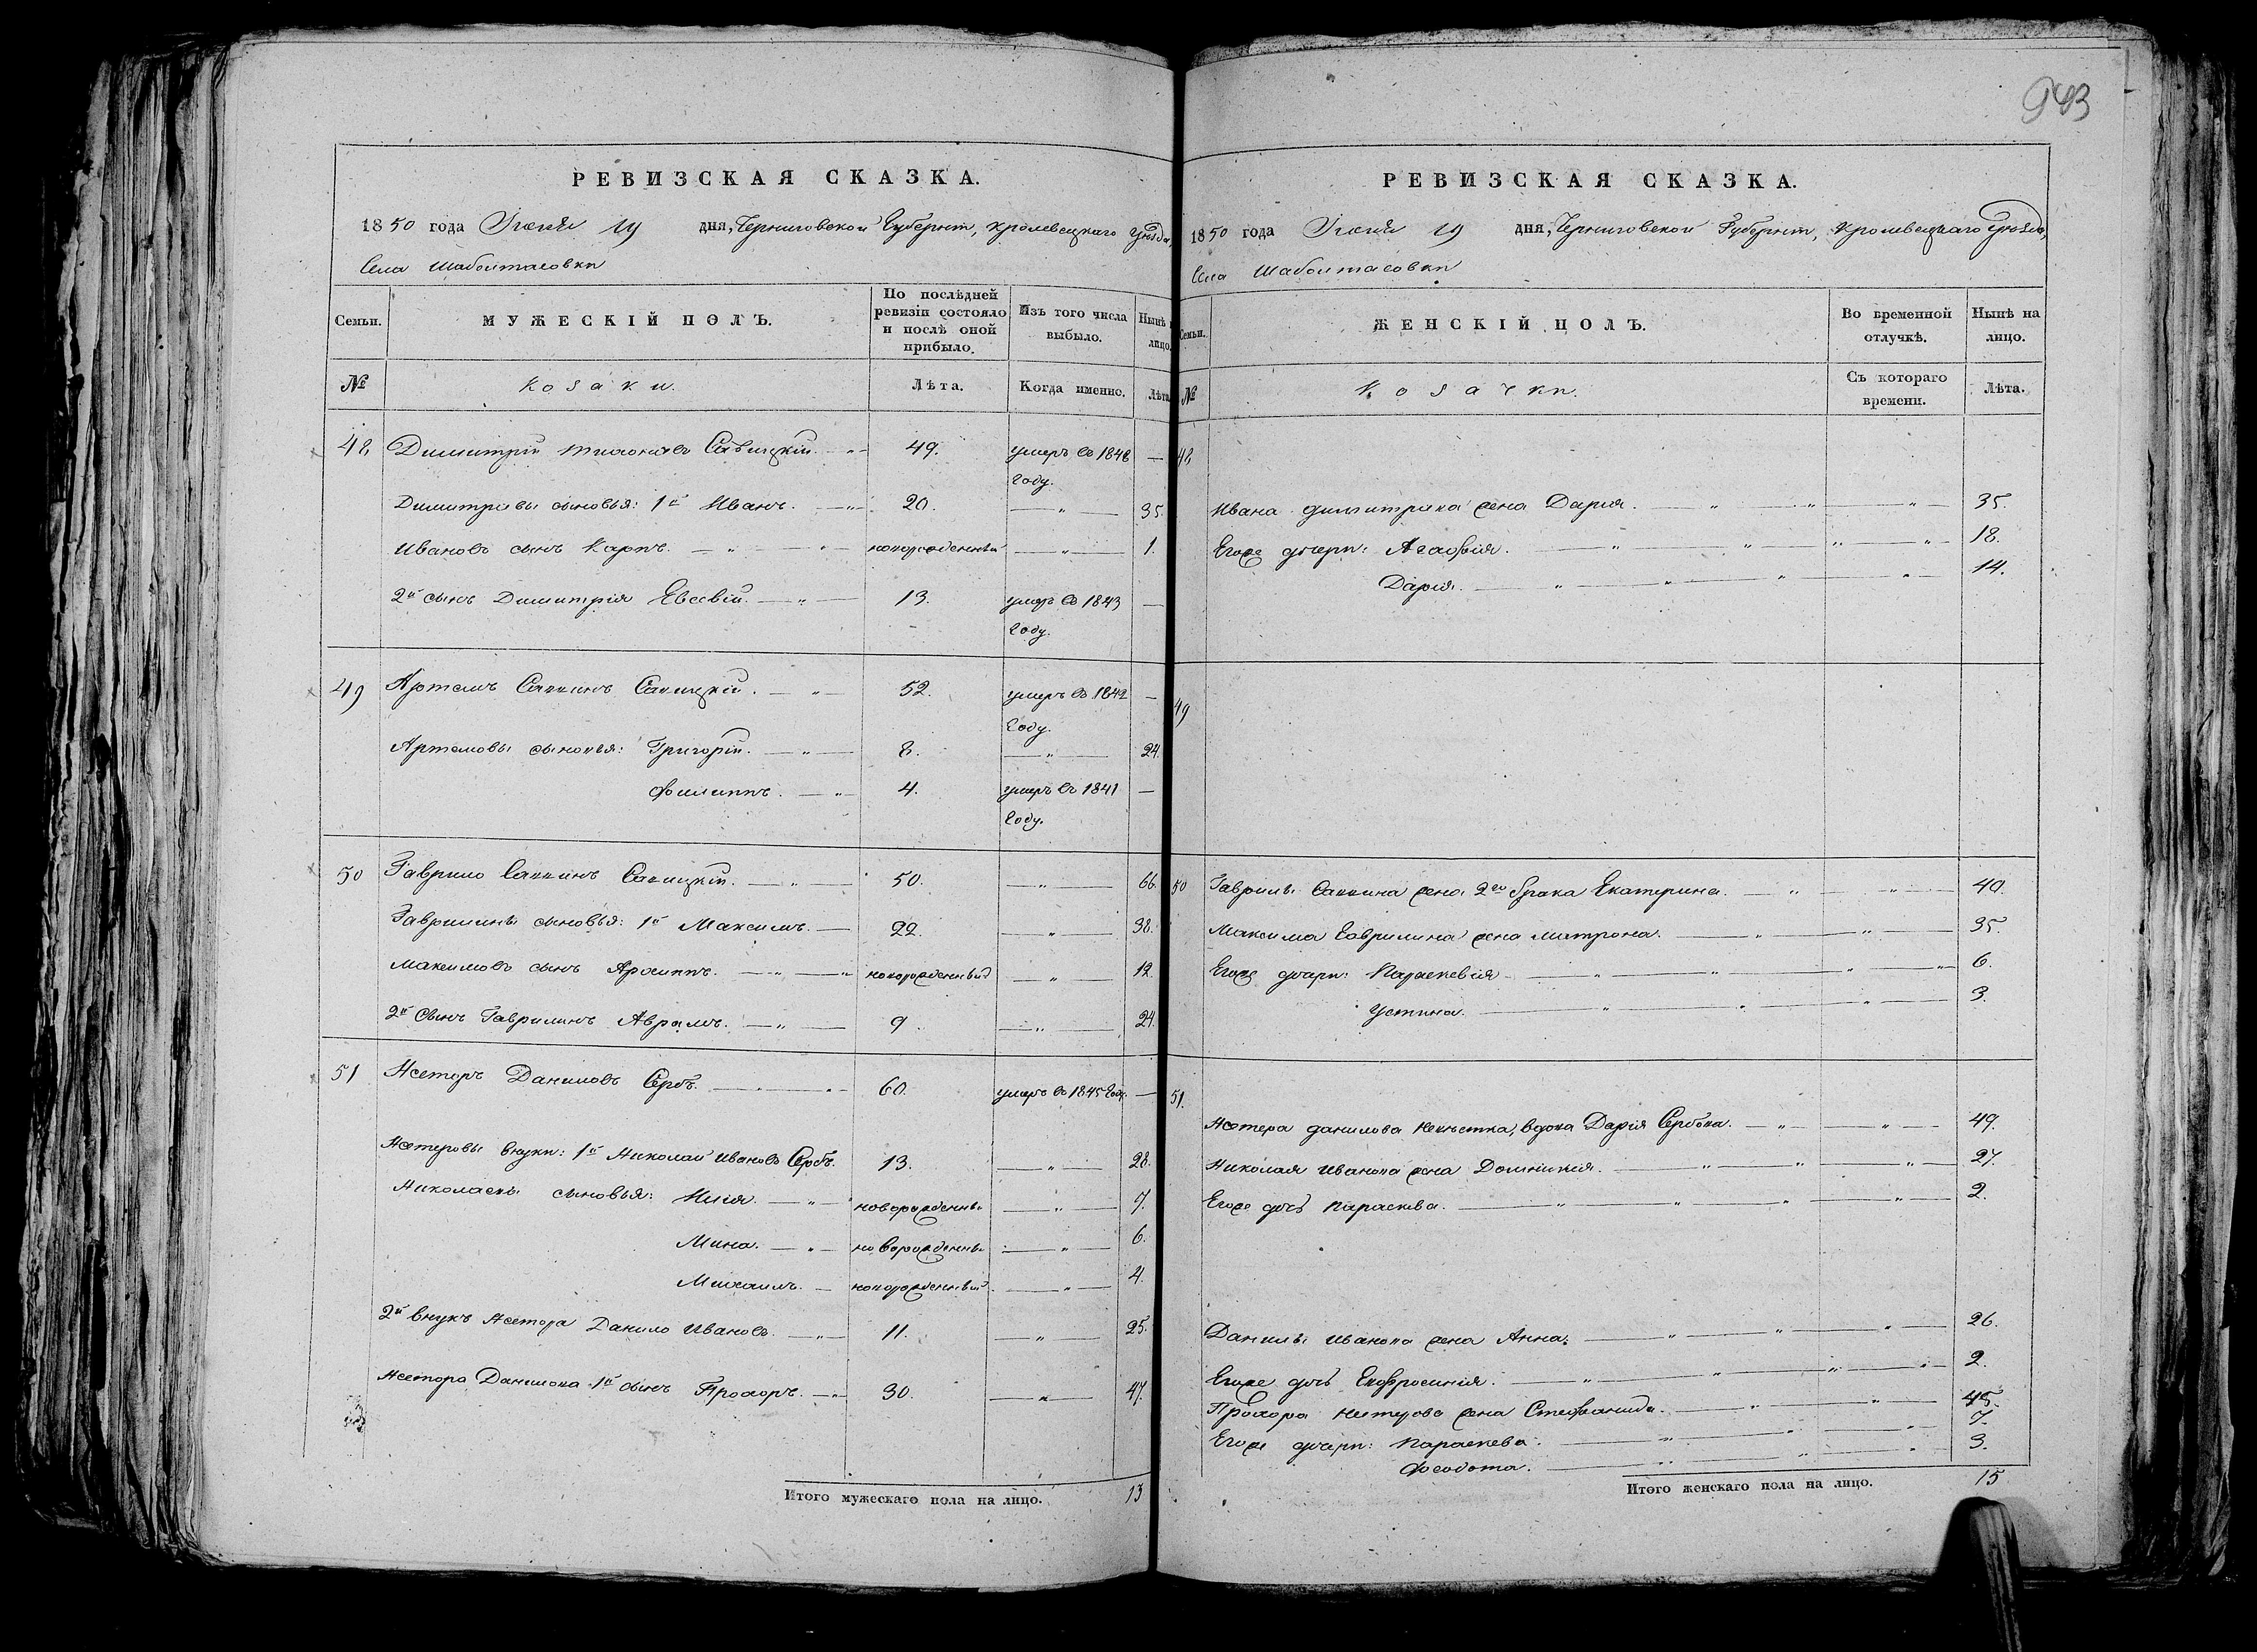 943
РЕВИЗСКАЯ СКАЗКА.
1850 года Іюня 19 дня, Черниговской Губерніи, Кролевецкаго Уѣзда
Села Шабалтасовки
Семьи. МУЖЕСКІЙ ПОЛЪ. По послѣдней ревизіи состояло и послѣ оной прибыло. Изъ того числа выбыло. Нынѣ на лицо.
№ Козаки. Лѣта. Когда именно. Лѣта.
48 Димитрій Савицкій. 49. умеръ въ 1848 —
году.
Димитріевы сыновья: 1й Иванъ. 20. — " — 35.
Ивановъ сынъ Карпъ. новорожденный — " — 1.
2й сынъ Димитрія Евсевій. 13. умеръ въ 1843 —
году.
49 Артемъ Саввинъ Савицкій. 52. умеръ въ 1842 —
году.
Артемовы сыновья: Григорій. 8. — " — 24.
Филиппъ. 4. умеръ въ 1841 —
году.
50 Гаврило Саввинъ Савицкій. 50. — " — 66.
Гаврилины сыновья: 1й Максимъ. 22. — " — 38.
Максимовъ сынъ Архиппъ. новорожденный — " — 12.
2й Сынъ Гаврилинъ Аврамъ. 9. — " — 24.
51 Нестеръ Даниловъ Сербъ. 60. умеръ въ 1845 году. —
Нестеровы внуки: 1й Николай Ивановъ Сербъ. 13. — " — 28.
Николаевы сыновья: Илія. новорожденный — " — 7.
Мина. новорожденный — " — 6.
Михаилъ. новорожденный — " — 4.
2й внукъ Нестора Данило Ивановъ. 11. — " — 25.
Нестора Данилова 1й сынъ Прохоръ. 30. — " — 47.
Итого мужескаго пола на лицо. 13
РЕВИЗСКАЯ СКАЗКА.
1850 года Іюня 19 дня, Черниговской Губерніи, Кролевецкаго Уѣзда,
Села Шабалтасовки
Семьи. ЖЕНСКІЙ ПОЛЪ. Во временной отлучкѣ. Нынѣ на лицо.
№ Козачки. Съ котораго времени. Лѣта.
48
Ивана Димитріева жена Дарія. 35.
Егоже дочери: Агафія. 18.
Дарія. 14.
49
50 Гаврилы Саввина жена 2го брака Екатерина. 40.
Максима Гаврилина жена Матрона. 35.
Егоже дочери: Параскевія 6.
Устина. 3.
51.
Нестера Данилова невѣстка, вдова Дарія Сербова. 49.
Николая Иванова жена Домникія. 27.
Егоже дочь Параскева. 2.
Данилы Иванова жена Анна. 26.
Егоже дочь Евфросинія. 2.
Прохора Нестерова жена Стефанида. 45.
Егоже дочери: Параскева. 7.
Феодота. 3.
Итого женскаго пола на лицо. 15